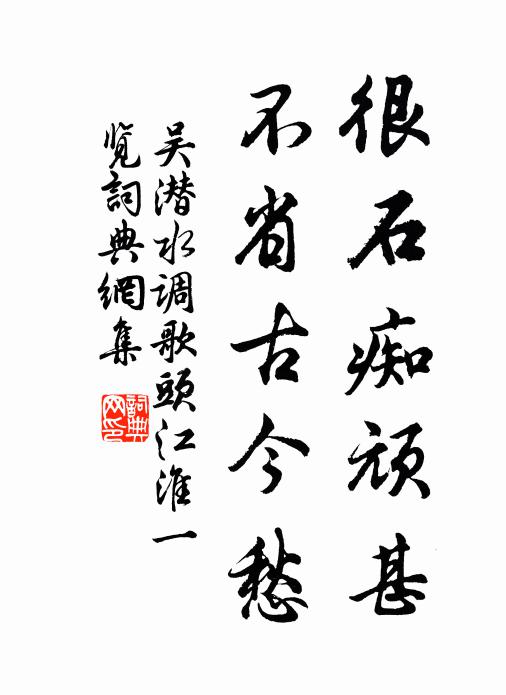 很石痴顽甚
不省古今愁
吴潜水调歌头江淮一
览詞典網集
詞典
网印